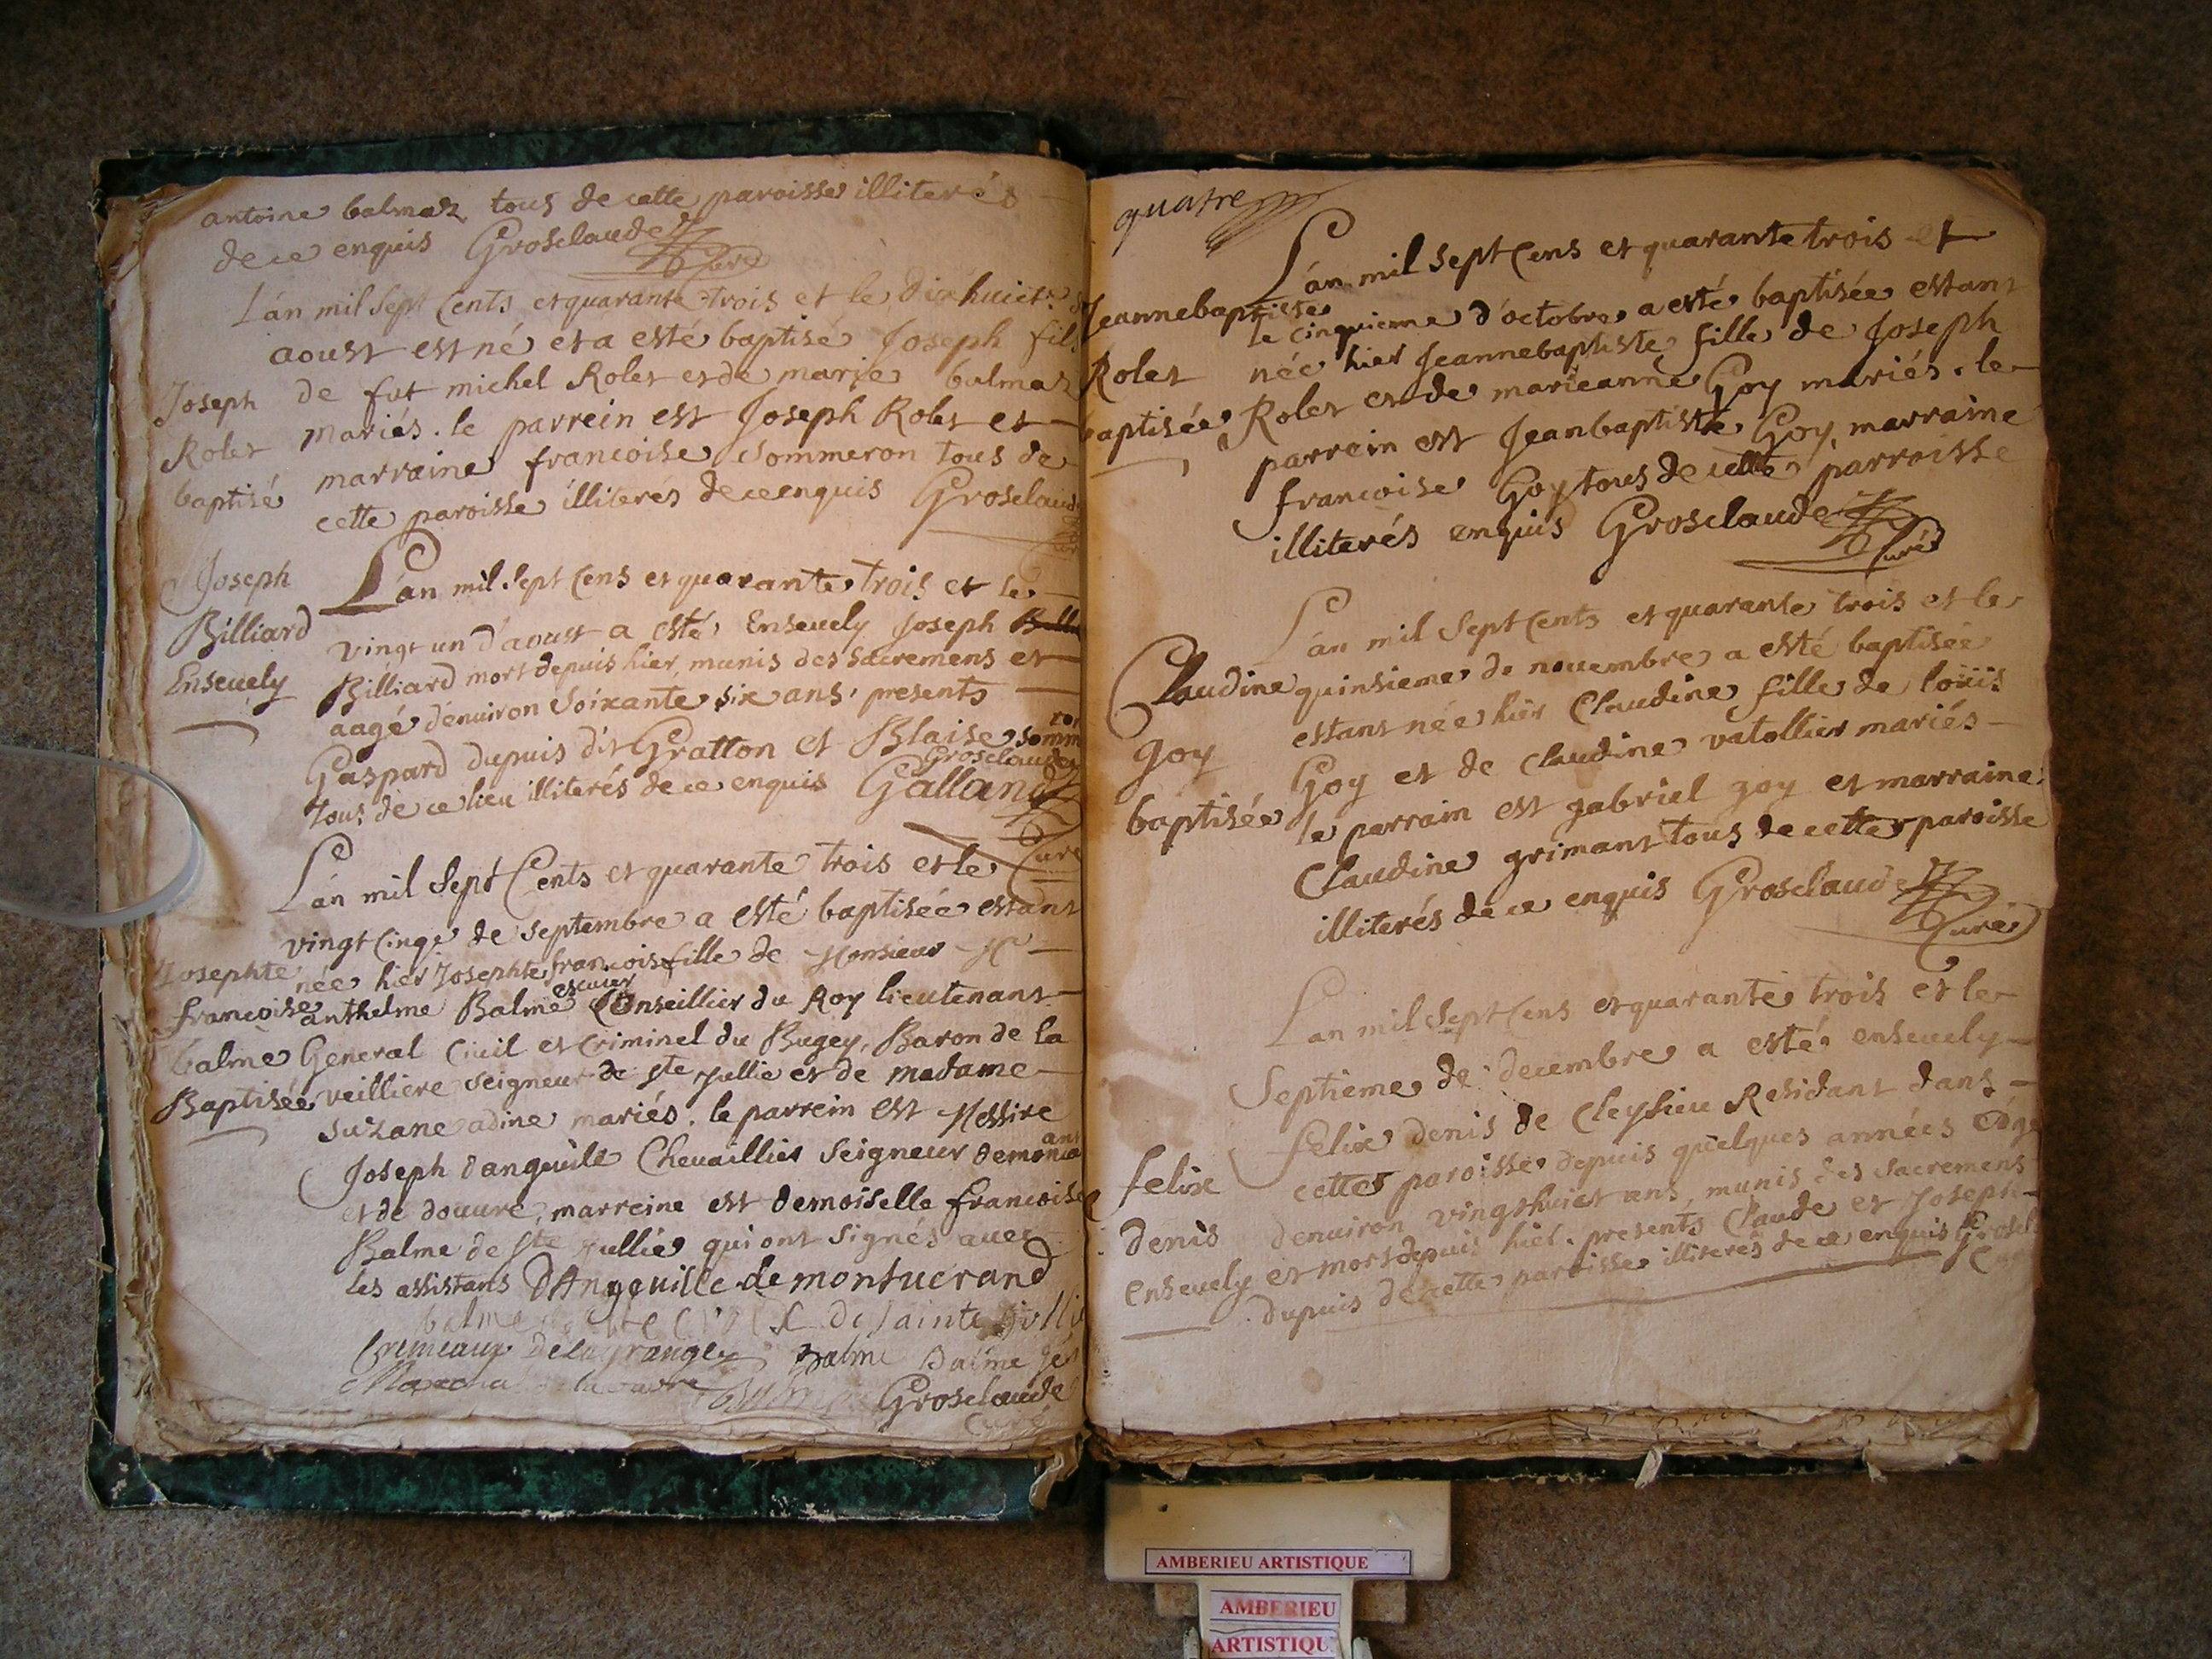 antoine balmaz tous de cette paroisse illiterés
de ce enquis Grosclaude
Curé
L'an mil sept Cents et quarante trois et le dixhuict
aoust est né et a esté baptisé Joseph fils
Joseph
Rolet
baptisé
de fut michel Rolet et de marie balmaz
mariés. le parrein est Joseph Rolet et
marraine francoise Sommeron tous de
cette paroisse illiterés de ce enquis Grosclaude
Joseph
Billiard
Enseuely
L'an mil sept Cens et quarante trois et le
vingt un d'aoust a esté Enseuely Joseph
Billiard mort depuis hier, munis des Sacremens et
aagé d'enuiron Soixante six ans. presents
Gaspard dupuis dit Gratton et Blaise
tous de ce lieu illiterés de ce enquis Galland
Grosclaude
Curé
L'an mil Sept Cents et quarante trois et le
vingt Cinqe de Septembre a esté baptisée estant
Josephte
francoise
balme
Baptisée
née hier Josephte francoise fille de Monsieur Me
anthelme Balme escuier Conseillier du Roy lieutenant
General Ciuil et Criminel du Bugey, Baron de la
veilliere Seigneur de Ste Jullie et de madame
Suzane adine mariés. le parrein est Messire
Joseph dangeuile Cheuaillier Seigneur de
et de douure, marreine est demoiselle francoise
Balme de Ste Jullie qui ont Signés auec
les assistans DAngeuille de montuerand
balme de Sainte Jullie
Cremeaux Delagrange Balme Balme
Grosclaude
Curé
quatre
L'an mil sept Cens et quarante trois et
Jeannebaptiste
Rolet
baptisée
le cinquieme d'octobre a esté baptisée estant
née hier Jeannebaptiste fille de Joseph
Rolet et de marieanne Goy mariés. le
parrein est Jeanbaptiste Goy, marraine
francoise Goy tous de cette parroisse
illiterés enquis Grosclaude
Curé
L'an mil Sept Cents et quarante trois et le
Claudine
goy
baptisée
quinsieme de nouembre a esté baptisée
estant née hier Claudine fille de loüis
Goy et de Claudine vatollier mariés
le parrain est gabriel goy et marraine
Claudine grimant tous de cette paroisse
illiterés de ce enquis Grosclaude
Curé
L'an mil Sept Cens et quarante trois et le
Septieme de decembre a esté enseuely
felix
denis
enseuely
felix denis de Cleysieu Residant dans
cette paroisse depuis quelques années
denuiron vingthuict ans, munis des sacremens
et mort depuis hier. presents Claude et Joseph
dupuis de cette paroisse illiterés de ce enquis
AMBERIEU ARTISTIQUE
AMBERIEU
ARTISTIQU